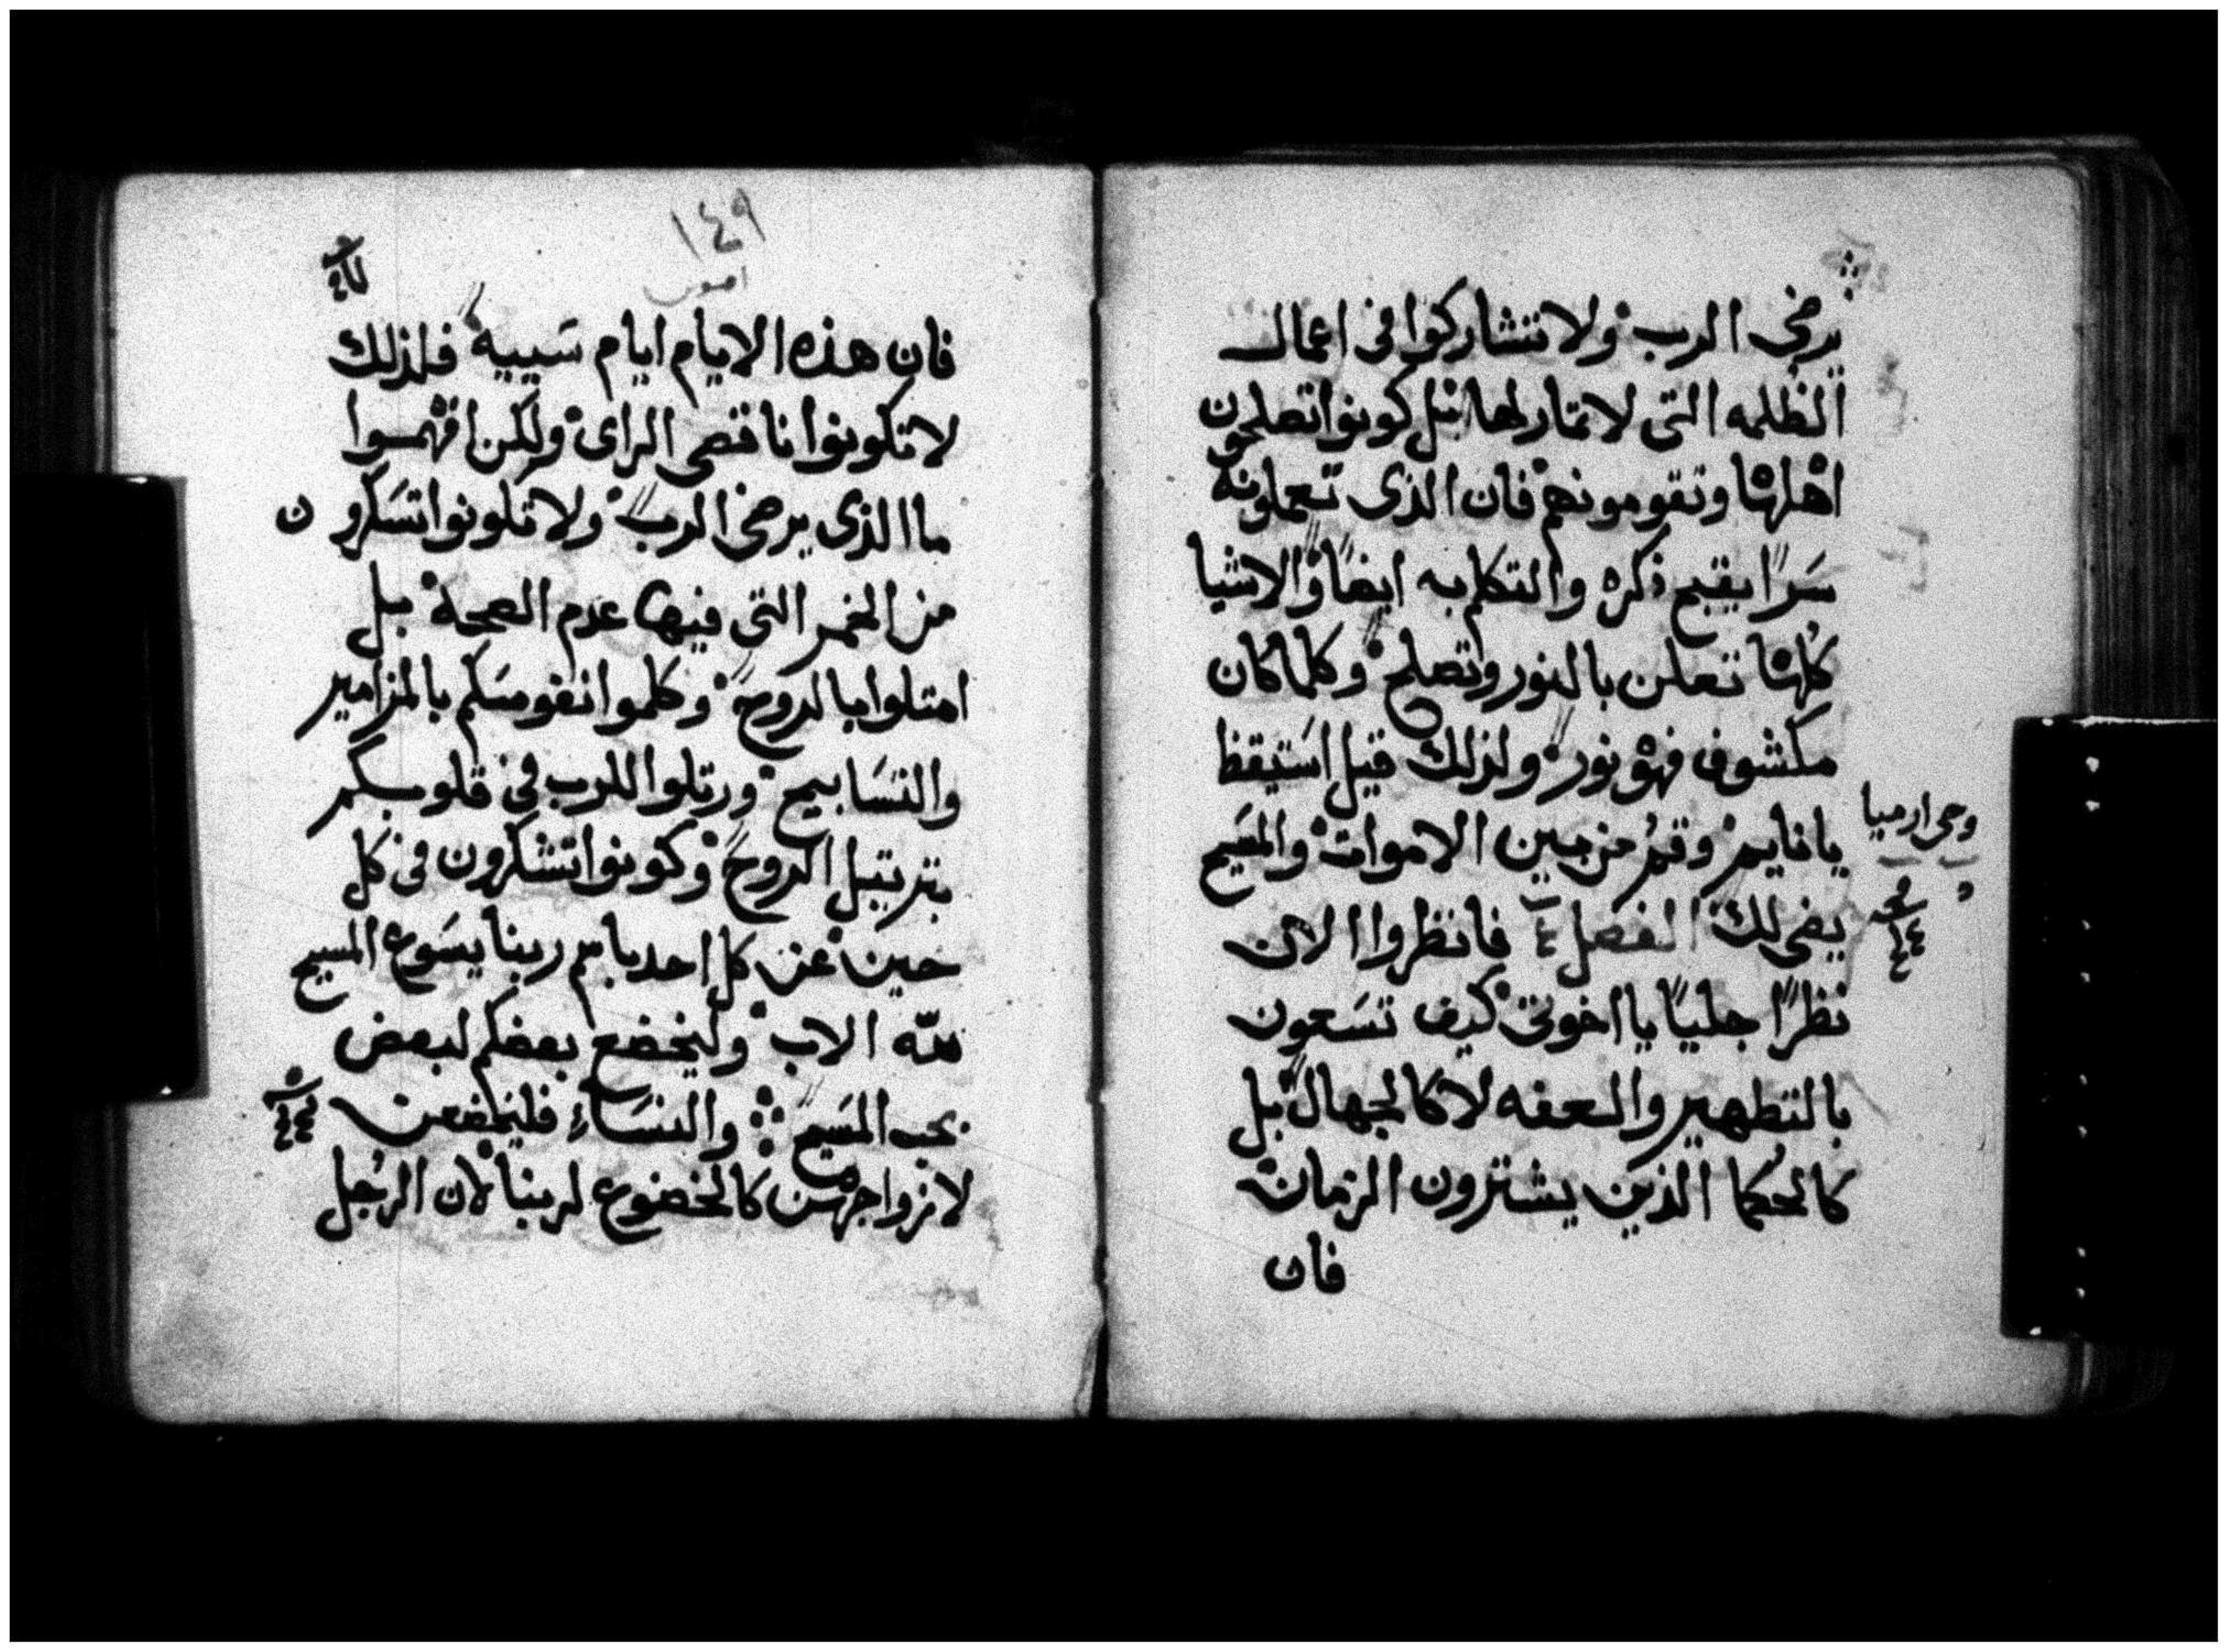 يرضى الرب ولا تتشاركوا فى اعمال
الظلمه التى لا تمار لها بل كونوا تصلحون
اهلها وتقومونهم فان الذى تعملونه
سرًا يقبح ذكره والتكلم به ايضًا والاشيا
كلها تعلن بالنور وتصلح وكلما كان
مكشوف فهو نور ولذلك قيل استيقظ
يا نايم وقم من بين الاموات والمسيح
يضى لك الفصل ٤ فانظروا الان
نظرًا جليًا يا اخوتى كيف تسعون
بالتطهير والعفه لا كالجهال بل
كالحكما الذين يشترون الزمان
فان
وحى ارميا
١٤٩
فان هذه الايام ايام سييه فلذلك
لا تكونوا ناقصى الراى ولكن افهموا
ما الذى يرضى الرب ولا تكونوا تسكرون
من الخمر التى فيها عدم الصحة بل
امتلوا بالروح وكلموا نفوسكم بالمزامير
والتسابيح ورتلوا للرب فى قلوبكم
بترتيل الروح وكونوا تشكرون فى كل
حين عن كل احد باسم ربنا يسوع المسيح
لله الاب وليخضع بعضكم لبعض
بحب المسيح والنساء فليخضعن
لازواجهن كالخضوع لربنا لان الرجل